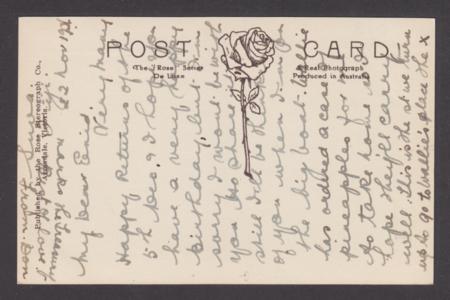 POST CARD
The "Rose" Series
De Luxe
A Real Photograph
Produced in Australia
Published by the Rose Stereograph Co.,
Armadale, Victoria.
22 Nov
My dear Enid
Very many
Happy Returns of the
5th Dec, & I hope you
have a very happy
birthday, but I am
sorry I wont be with
you to share it
still I'll be thinking
of you when I'm on
the big boat. Wallie
has ordered a case of
pineapples for me
to take home, so
hope they'll carry
well. this is the st we turn
up to go to Wallie's place the x
marks the turning
from Don